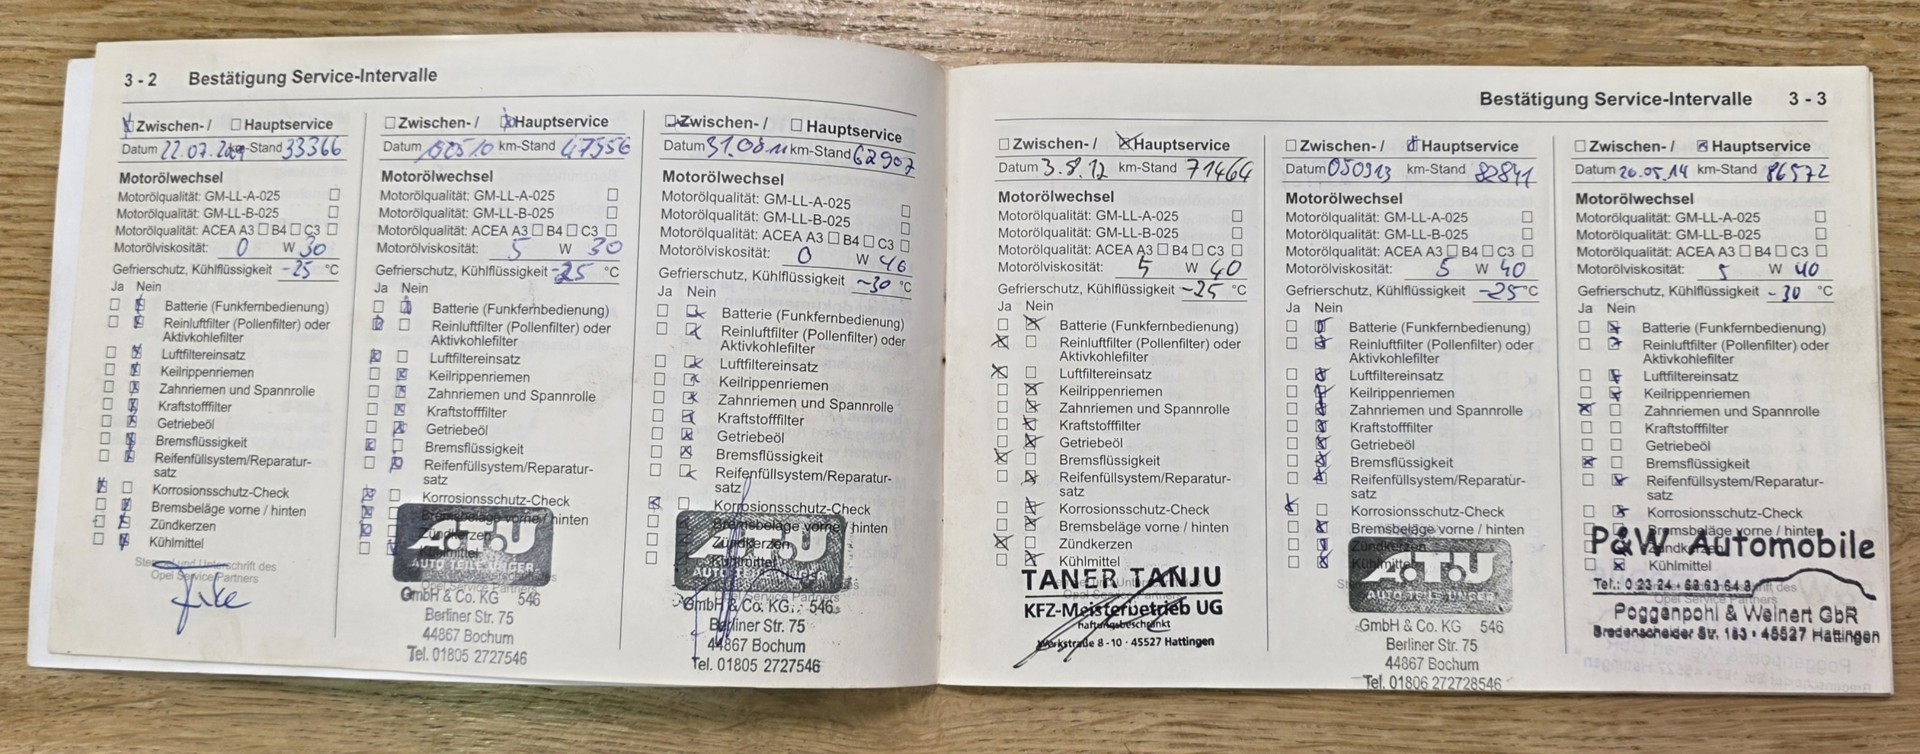 3 - 2 Bestätigung Service-Intervalle
Zwischen- / Hauptservice
Datum 22.07. km-Stand 33366
Motorölwechsel
Motorölqualität: GM-LL-A-025
Motorölqualität: GM-LL-B-025
Motorölqualität: ACEA A3 B4 C3
Motorölviskosität: 0 W 30
Gefrierschutz, Kühlflüssigkeit -25 °C
Ja Nein
Batterie (Funkfernbedienung)
Reinluftfilter (Pollenfilter) oder
Aktivkohlefilter
Luftfiltereinsatz
Keilrippenriemen
Zahnriemen und Spannrolle
Kraftstofffilter
Getriebeöl
Bremsflüssigkeit
Reifenfüllsystem/Reparatur-
satz
Korrosionsschutz-Check
Bremsbeläge vorne / hinten
Zündkerzen
Kühlmittel
Stempel und Unterschrift des
Opel Service Partners
Zwischen- / Hauptservice
Datum km-Stand 47556
Motorölwechsel
Motorölqualität: GM-LL-A-025
Motorölqualität: GM-LL-B-025
Motorölqualität: ACEA A3 B4 C3
Motorölviskosität: 5 W 30
Gefrierschutz, Kühlflüssigkeit -25 °C
Ja Nein
Batterie (Funkfernbedienung)
Reinluftfilter (Pollenfilter) oder
Aktivkohlefilter
Luftfiltereinsatz
Keilrippenriemen
Zahnriemen und Spannrolle
Kraftstofffilter
Getriebeöl
Bremsflüssigkeit
Reifenfüllsystem/Reparatur-
satz
Korrosionsschutz-Check
Bremsbeläge vorne / hinten
Zündkerzen
Kühlmittel
A.T.U
AUTO TEILE UNGER
GmbH & Co. KG 546
Berliner Str. 75
44867 Bochum
Tel. 01805 2727546
Zwischen- / Hauptservice
Datum 31.08.11 km-Stand 62907
Motorölwechsel
Motorölqualität: GM-LL-A-025
Motorölqualität: GM-LL-B-025
Motorölqualität: ACEA A3 B4 C3
Motorölviskosität: 0 W 40
Gefrierschutz, Kühlflüssigkeit -30 °C
Ja Nein
Batterie (Funkfernbedienung)
Reinluftfilter (Pollenfilter) oder
Aktivkohlefilter
Luftfiltereinsatz
Keilrippenriemen
Zahnriemen und Spannrolle
Kraftstofffilter
Getriebeöl
Bremsflüssigkeit
Reifenfüllsystem/Reparatur-
satz
Korrosionsschutz-Check
Bremsbeläge vorne / hinten
Zündkerzen
Kühlmittel
A.T.U
AUTO TEILE UNGER
Opel Service Partners
GmbH & Co. KG 546
Berliner Str. 75
44867 Bochum
Tel. 01805 2727546
Bestätigung Service-Intervalle 3 - 3
Zwischen- / Hauptservice
Datum 3.8.12 km-Stand 71464
Motorölwechsel
Motorölqualität: GM-LL-A-025
Motorölqualität: GM-LL-B-025
Motorölqualität: ACEA A3 B4 C3
Motorölviskosität: 5 W 40
Gefrierschutz, Kühlflüssigkeit -25 °C
Ja Nein
Batterie (Funkfernbedienung)
Reinluftfilter (Pollenfilter) oder
Aktivkohlefilter
Luftfiltereinsatz
Keilrippenriemen
Zahnriemen und Spannrolle
Kraftstofffilter
Getriebeöl
Bremsflüssigkeit
Reifenfüllsystem/Reparatur-
satz
Korrosionsschutz-Check
Bremsbeläge vorne / hinten
Zündkerzen
Kühlmittel
TANER TANJU
KFZ-Meisterbetrieb UG
haftungsbeschränkt
8-10 · 45527 Hattingen
Zwischen- / Hauptservice
Datum 050913 km-Stand 82841
Motorölwechsel
Motorölqualität: GM-LL-A-025
Motorölqualität: GM-LL-B-025
Motorölqualität: ACEA A3 B4 C3
Motorölviskosität: 5 W 40
Gefrierschutz, Kühlflüssigkeit -25 °C
Ja Nein
Batterie (Funkfernbedienung)
Reinluftfilter (Pollenfilter) oder
Aktivkohlefilter
Luftfiltereinsatz
Keilrippenriemen
Zahnriemen und Spannrolle
Kraftstofffilter
Getriebeöl
Bremsflüssigkeit
Reifenfüllsystem/Reparatur-
satz
Korrosionsschutz-Check
Bremsbeläge vorne / hinten
Zündkerzen
Kühlmittel
A.T.U
AUTO TEILE UNGER
GmbH & Co. KG 546
Berliner Str. 75
44867 Bochum
Tel. 01806 272728546
Zwischen- / Hauptservice
Datum 20.05.14 km-Stand 86572
Motorölwechsel
Motorölqualität: GM-LL-A-025
Motorölqualität: GM-LL-B-025
Motorölqualität: ACEA A3 B4 C3
Motorölviskosität: 5 W 40
Gefrierschutz, Kühlflüssigkeit -30 °C
Ja Nein
Batterie (Funkfernbedienung)
Reinluftfilter (Pollenfilter) oder
Aktivkohlefilter
Luftfiltereinsatz
Keilrippenriemen
Zahnriemen und Spannrolle
Kraftstofffilter
Getriebeöl
Bremsflüssigkeit
Reifenfüllsystem/Reparatur-
satz
Korrosionsschutz-Check
Bremsbeläge vorne / hinten
Zündkerzen
Kühlmittel
P&W Automobile
Tel.: 0 23 24 - 68 63 64 8
Poggenpohl & Weinert GbR
Bredenscheider Str. 183 · 45527 Hattingen